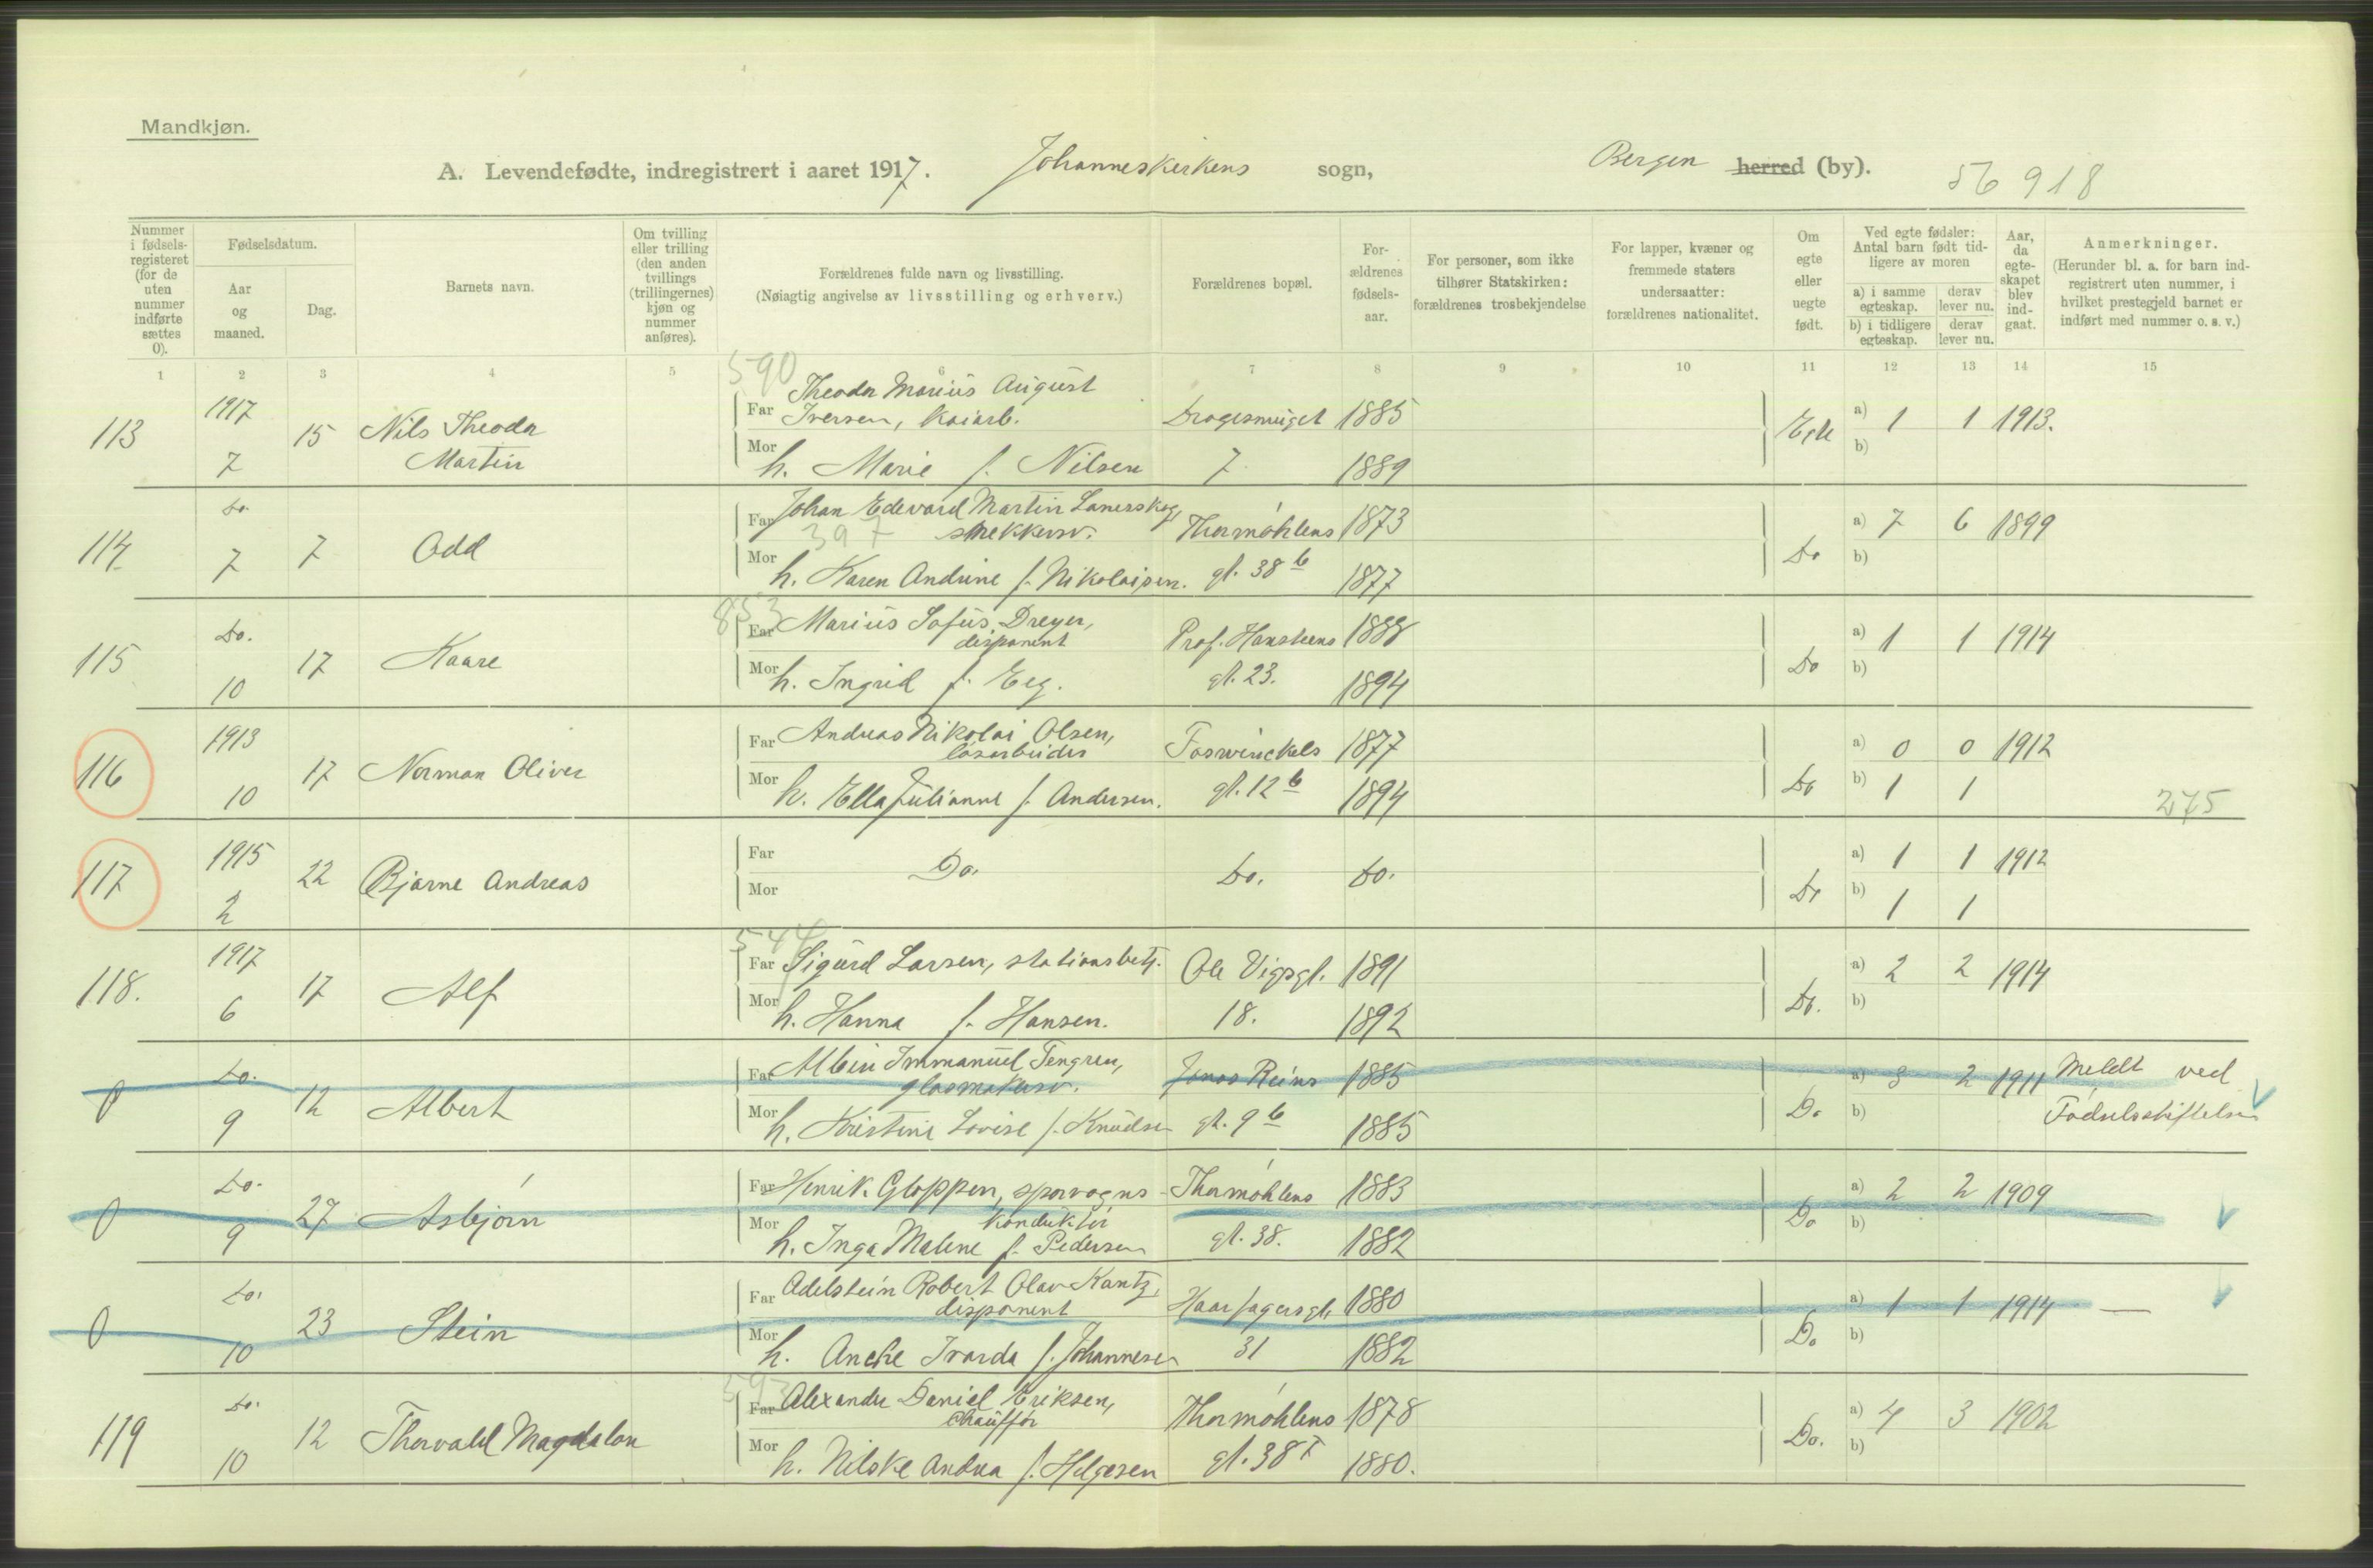 Mandkjøn.
A. Levendefødte, indregistrert i aaret 1917. Johanneskirkens sogn, Bergen herred (by). 56 918
Nummer i fødsels-registeret (for de uten nummer indførte sættes 0).
Fødselsdatum.
Aar og maaned.
Dag.
Barnets navn.
Om tvilling eller trilling (den anden tvillings (trillingernes) kjøn og nummer anføres).
Forældrenes fulde navn og livsstilling.
(Nøiagtig angivelse av livsstilling og erhverv.)
Forældrenes bopæl.
For-ældrenes fødsels-aar.
For personer, som ikke tilhører Statskirken: forældrenes trosbekjendelse
For lapper, kvæner og fremmede staters undersaatter: forældrenes nationalitet.
Om egte eller uegte født.
Ved egte fødsler: Antal barn født tid-ligere av moren
a) i samme egteskap. derav lever nu.
b) i tidligere egteskap. derav lever nu.
Aar, da egte-skapet blev ind-gaat.
Anmerkninger.
(Herunder bl. a. for barn ind-registrert uten nummer, i hvilket prestegjeld barnet er indført med nummer o. s. v.)
1 2 3 4 5 6 7 8 9 10 11 12 13 14 15
590
Theodor Marius August
113 1917 15 Nils Theodor Far Iversen, kaiarb. Dragesmuget 1885 Egte a) 1 1 1913.
7 Martin Mor h. Marie f. Nilsen 7 1889 b)
114 Do. 7 Odd Far Johan Edevard Martin Lanerskog, Thormøhlens 1873 Do a) 7 6 1899
397 snekkersv.
7 Mor h. Karen Andrine f. Nikolaisen. gt. 38 b 1877 b)
853
115 Do. 17 Kaare Far Marius Sofus Dreyer, Prof. Hansteens 1888 Do a) 1 1 1914
disponent
10 Mor h. Ingrid f. Eeg. gt. 23. 1894 b)
116 1913 17 Norman Oliver Far Andreas Nikolai Olsen, Foswinckels 1877 Do a) 0 0 1912
løsarbeider
10 Mor h. Ella Julianne f. Andersen. gt. 12 b 1894 b) 1 1 275
117 1915 22 Bjarne Andreas Far Do. Do. Do. Do a) 1 1 1912
2 Mor b) 1 1
544
118. 1917 17 Alf Far Sigurd Larsen, stationsbetj. Ole Vigsgt. 1891 Do. a) 2 2 1914
6 Mor h. Hanna f. Hansen. 18. 1892 b)
0 Do. 12 Albert Far Albin Immanuel Tengren, Jonas Reins 1885 Do a) 3 2 1911 Meldt ved
glasmakersv.
9 Mor h. Kristine Lovise f. Knudsen gt. 9 b 1885 b) Fødselsstiftelsen
0 Do. 27 Asbjørn Far Henrik Gloppen, sporvogns- Thormøhlens 1883 Do a) 2 2 1909 —
konduktør
9 Mor h. Inga Malene f. Pedersen gt. 38. 1882 b)
0 Do. 23 Stein Far Adelstein Robert Olav Kantz, Haarfagersgt. 1880 Do a) 1 1 1914 —
disponent
10 Mor h. Ancke Ivarda f. Johannesen 31 1882 b)
593
119 Do. 12 Thorvald Magdalon Far Alexander Daniel Eriksen, Thormøhlens 1878 Do. a) 4 3 1902
Chauffør
10 Mor h. Nilske Andrea f. Helgesen gt. 38 I 1880. b)